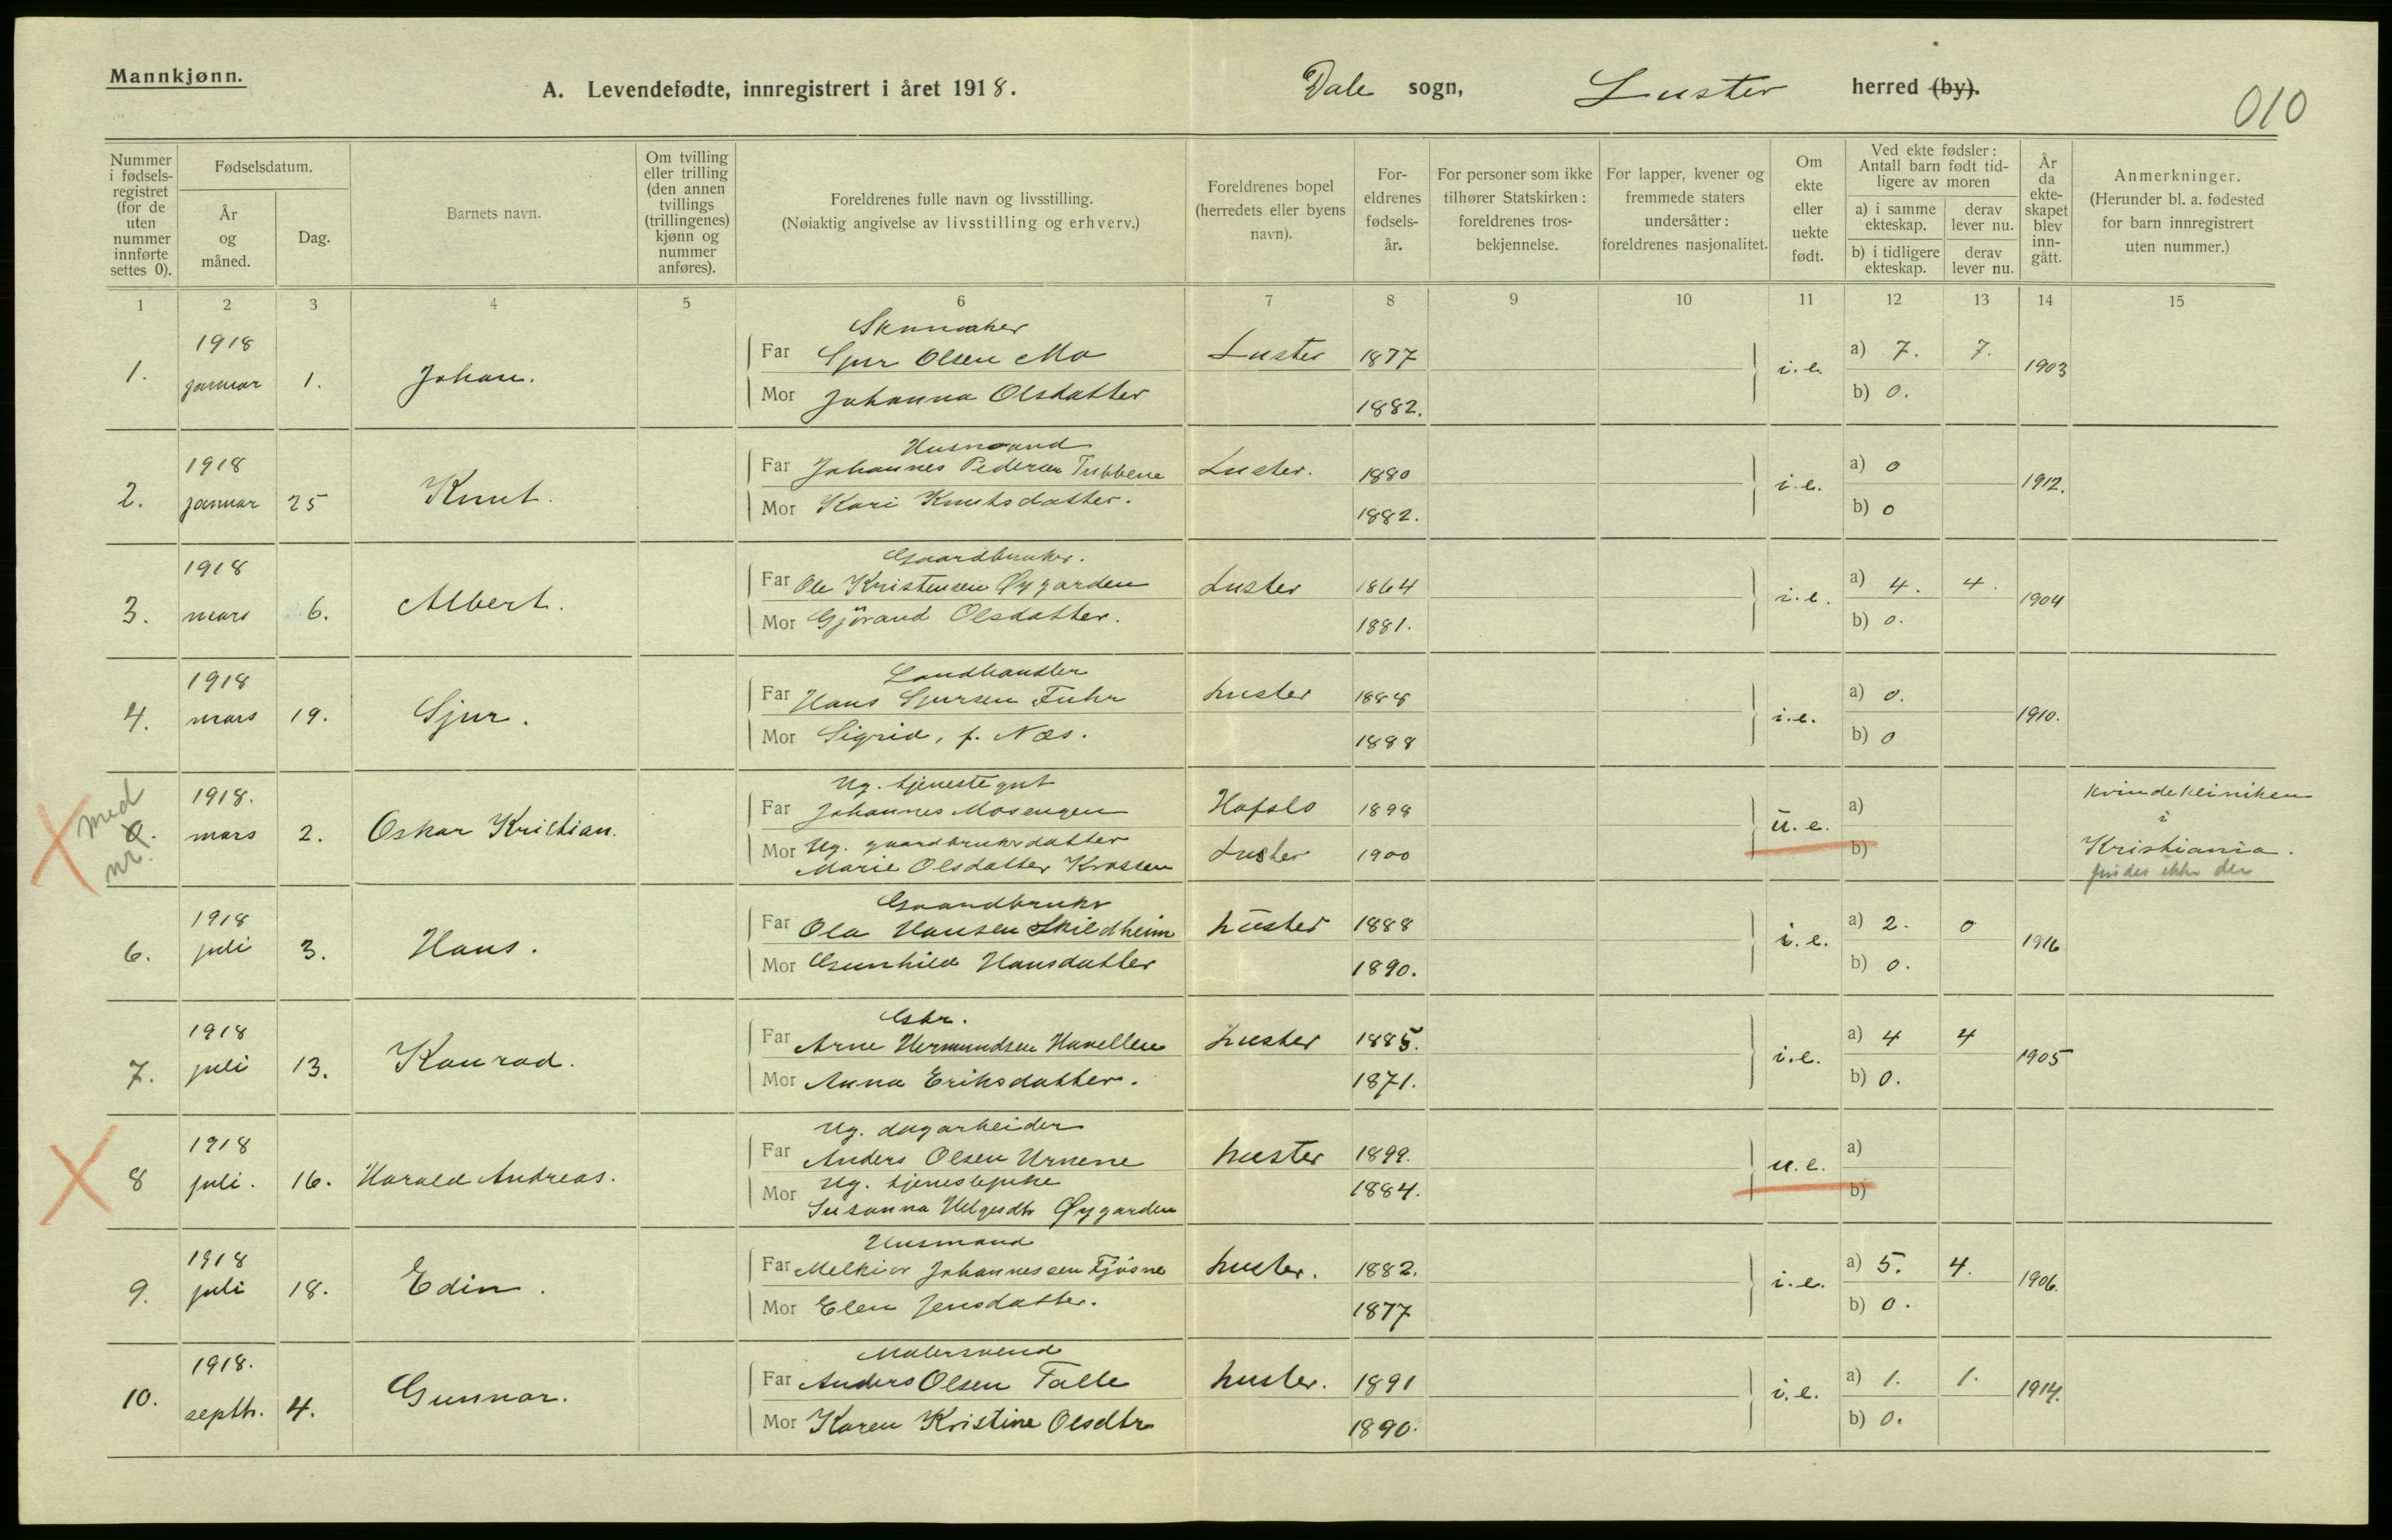 Mannkjønn.
A. Levendefødte, innregistrert i året 1918.
Dale sogn, Luster herred (by).
010
Nummer i fødsels-registret (for de uten nummer innførte settes 0).
Fødselsdatum.
År og måned.
Dag.
Barnets navn.
Om tvilling eller trilling (den annen tvillings (trillingenes) kjønn og nummer anføres).
Foreldrenes fulle navn og livsstilling.
(Nøiaktig angivelse av livsstilling og erhverv.)
Foreldrenes bopel (herredets eller byens navn).
For-eldrenes fødsels-år.
For personer som ikke tilhører Statskirken: foreldrenes tros-bekjennelse.
For lapper, kvener og fremmede staters undersåtter: foreldrenes nasjonalitet.
Om ekte eller uekte født.
Ved ekte fødsler: Antall barn født tid-ligere av moren
a) i samme ekteskap.
derav lever nu.
b) i tidligere ekteskap.
derav lever nu.
År da ekte-skapet blev inn-gått.
Anmerkninger.
(Herunder bl. a. fødested for barn innregistrert uten nummer.)
1 2 3 4 5 6 7 8 9 10 11 12 13 14 15
Skomaker
1. 1918 januar 1. Johan. Far Sjur Olsen Mo Luster 1877 i. e. a) 7. 7. 1903
Mor Johanna Olsdatter 1882. b) 0.
Husmand
2. 1918 januar 25 Knut. Far Johannes Pedersen Luster. 1880 i. e. a) 0 1912.
Mor Kari Knutsdatter. 1882. b) 0
Gaardbruker.
3. 1918 mars 6. Albert. Far Ole Kristensen Øygarden Luster 1864 i. e. a) 4. 4. 1904
Mor Gjörand Olsdatter. 1881. b) 0.
Landhandler
4. 1918 mars 19. Sjur. Far Hans Sjursen Fuhr Luster 1888 i. e. a) 0. 1910.
Mor Sigrid, f. Næs. 1888 b) 0
Ug. tjenestegut
med nr! 0. 1918. mars 2. Oskar Kristian. Far Johannes Mosengen Hafslo 1898 u. e. a) kvindekliniken i
Mor Ug. gaardbrukerdatter Luster 1900 b) Kristiania.
Marie Olsdatter Krossen findes ikke der
Gaardbruker
6. 1918 juli 3. Hans. Far Ola Hansen Skildheim Luster 1888 i. e. a) 2. 0 1916
Mor Gunhild Hansdatter 1890. b) 0.
Gbr.
7. 1918 juli 13. Konrad. Far Arne Hermundsen Luster 1885. i. e. a) 4 4 1905
Mor Anna Eriksdatter. 1871. b) 0.
Ug. dagarbeider
8 1918 juli. 16. Harald Andreas. Far Anders Olsen Urnene Luster 1899. u. e. a)
Mor Ug. tjenestepike 1884. b)
Susanna Helgesdtr Øygarden
Husmand
9. 1918 juli 18. Edin. Far Melkior Johannessen Fjøsne Luster. 1882. i. e. a) 5. 4. 1906.
Mor Elen Jensdatter. 1877 b) 0.
Malersvend
10. 1918. septbr. 4. Gunnar. Far Anders Olsen Talle Luster. 1891 i. e. a) 1. 1. 1914.
Mor Karen Kristine Olsdtr 1890. b) 0.